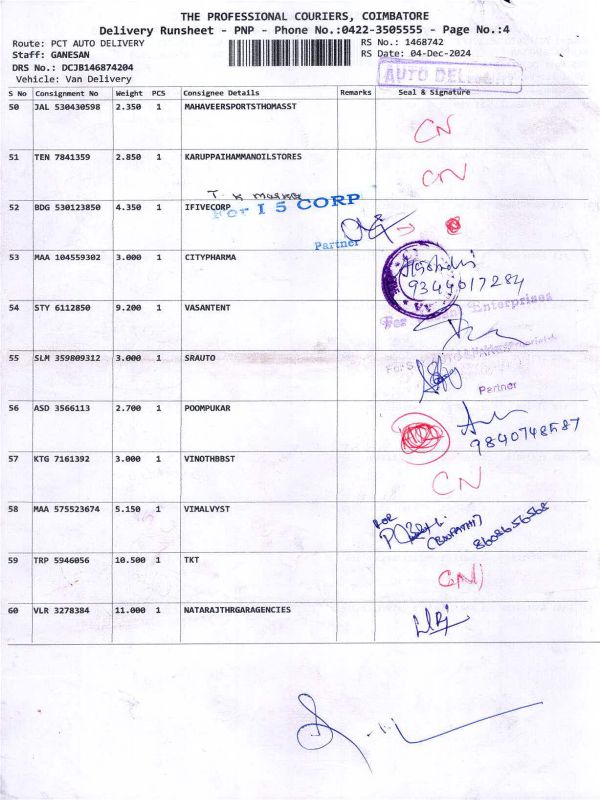 THE PROFESSIONAL COURIERS, COIMBATORE
Delivery Runsheet - PNP - Phone No.:0422-3505555 - Page No.:4
Route: PCT AUTO DELIVERY RS No.: 1468742
Staff: GANESAN RS Date: 04-Dec-2024
DRS No.: DCJB146874204
Vehicle: Van Delivery
AUTO DELIVERY
S No Consignment No Weight PCS Consignee Details Remarks Seal & Signature
50 JAL 530430598 2.350 1 MAHAVEERSPORTSTHOMASST
CN
51 TEN 7841359 2.850 1 KARUPPAIHAMMANOILSTORES
CN
For I 5 CORP
52 BDG 530123850 4.350 1 IFIVECORP
Partner
53 MAA 104559302 3.000 1 CITYPHARMA
9344617284
54 STY 6112850 9.200 1 VASANTENT
For Enterprises
55 SLM 359809312 3.000 1 SRAUTO
For S
Partner
56 ASD 3566113 2.700 1 POOMPUKAR
9840748587
57 KTG 7161392 3.000 1 VINOTHBBST
CN
58 MAA 575523674 5.150 1 VIMALVYST
FOR
(BOOPATHI)
8608656568
59 TRP 5946056 10.500 1 TKT
60 VLR 3278384 11.000 1 NATARAJTHRGARAGENCIES